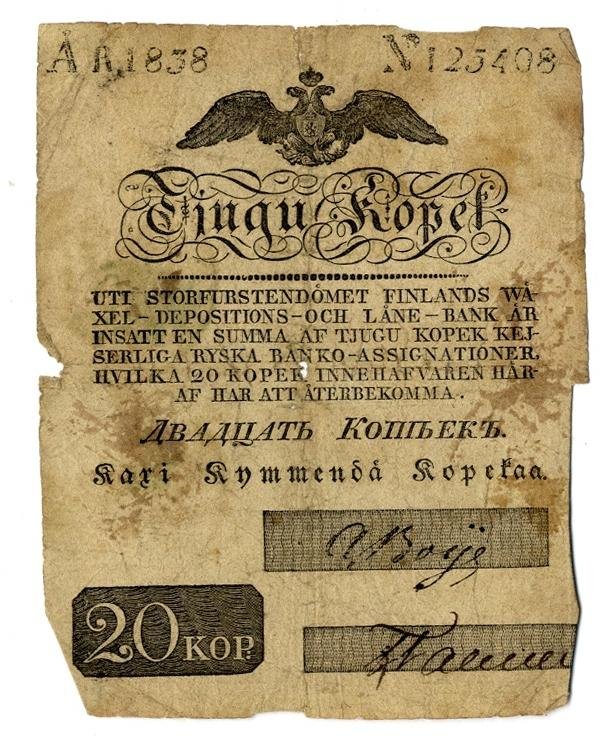 ÅR 1838 No 125408
Tjugu Kopek
UTI STORFURSTENDÖMET FINLANDS WÄ-
XEL-DEPOSITIONS-OCH LÅNE-BANK ÄR
INSATT EN SUMMA AF TJUGU KOPEK KEJ-
SERLIGA RYSKA BANKO-ASSIGNATIONER,
HVILKA 20 KOPEK INNEHAFVAREN HÄR-
AF HAR ATT ÅTERBEKOMMA.
ДВАДЦАТЬ КОПѢЕКЪ.
Kaxi Kymmendä Kopekaa.
Boije
20 KOP.